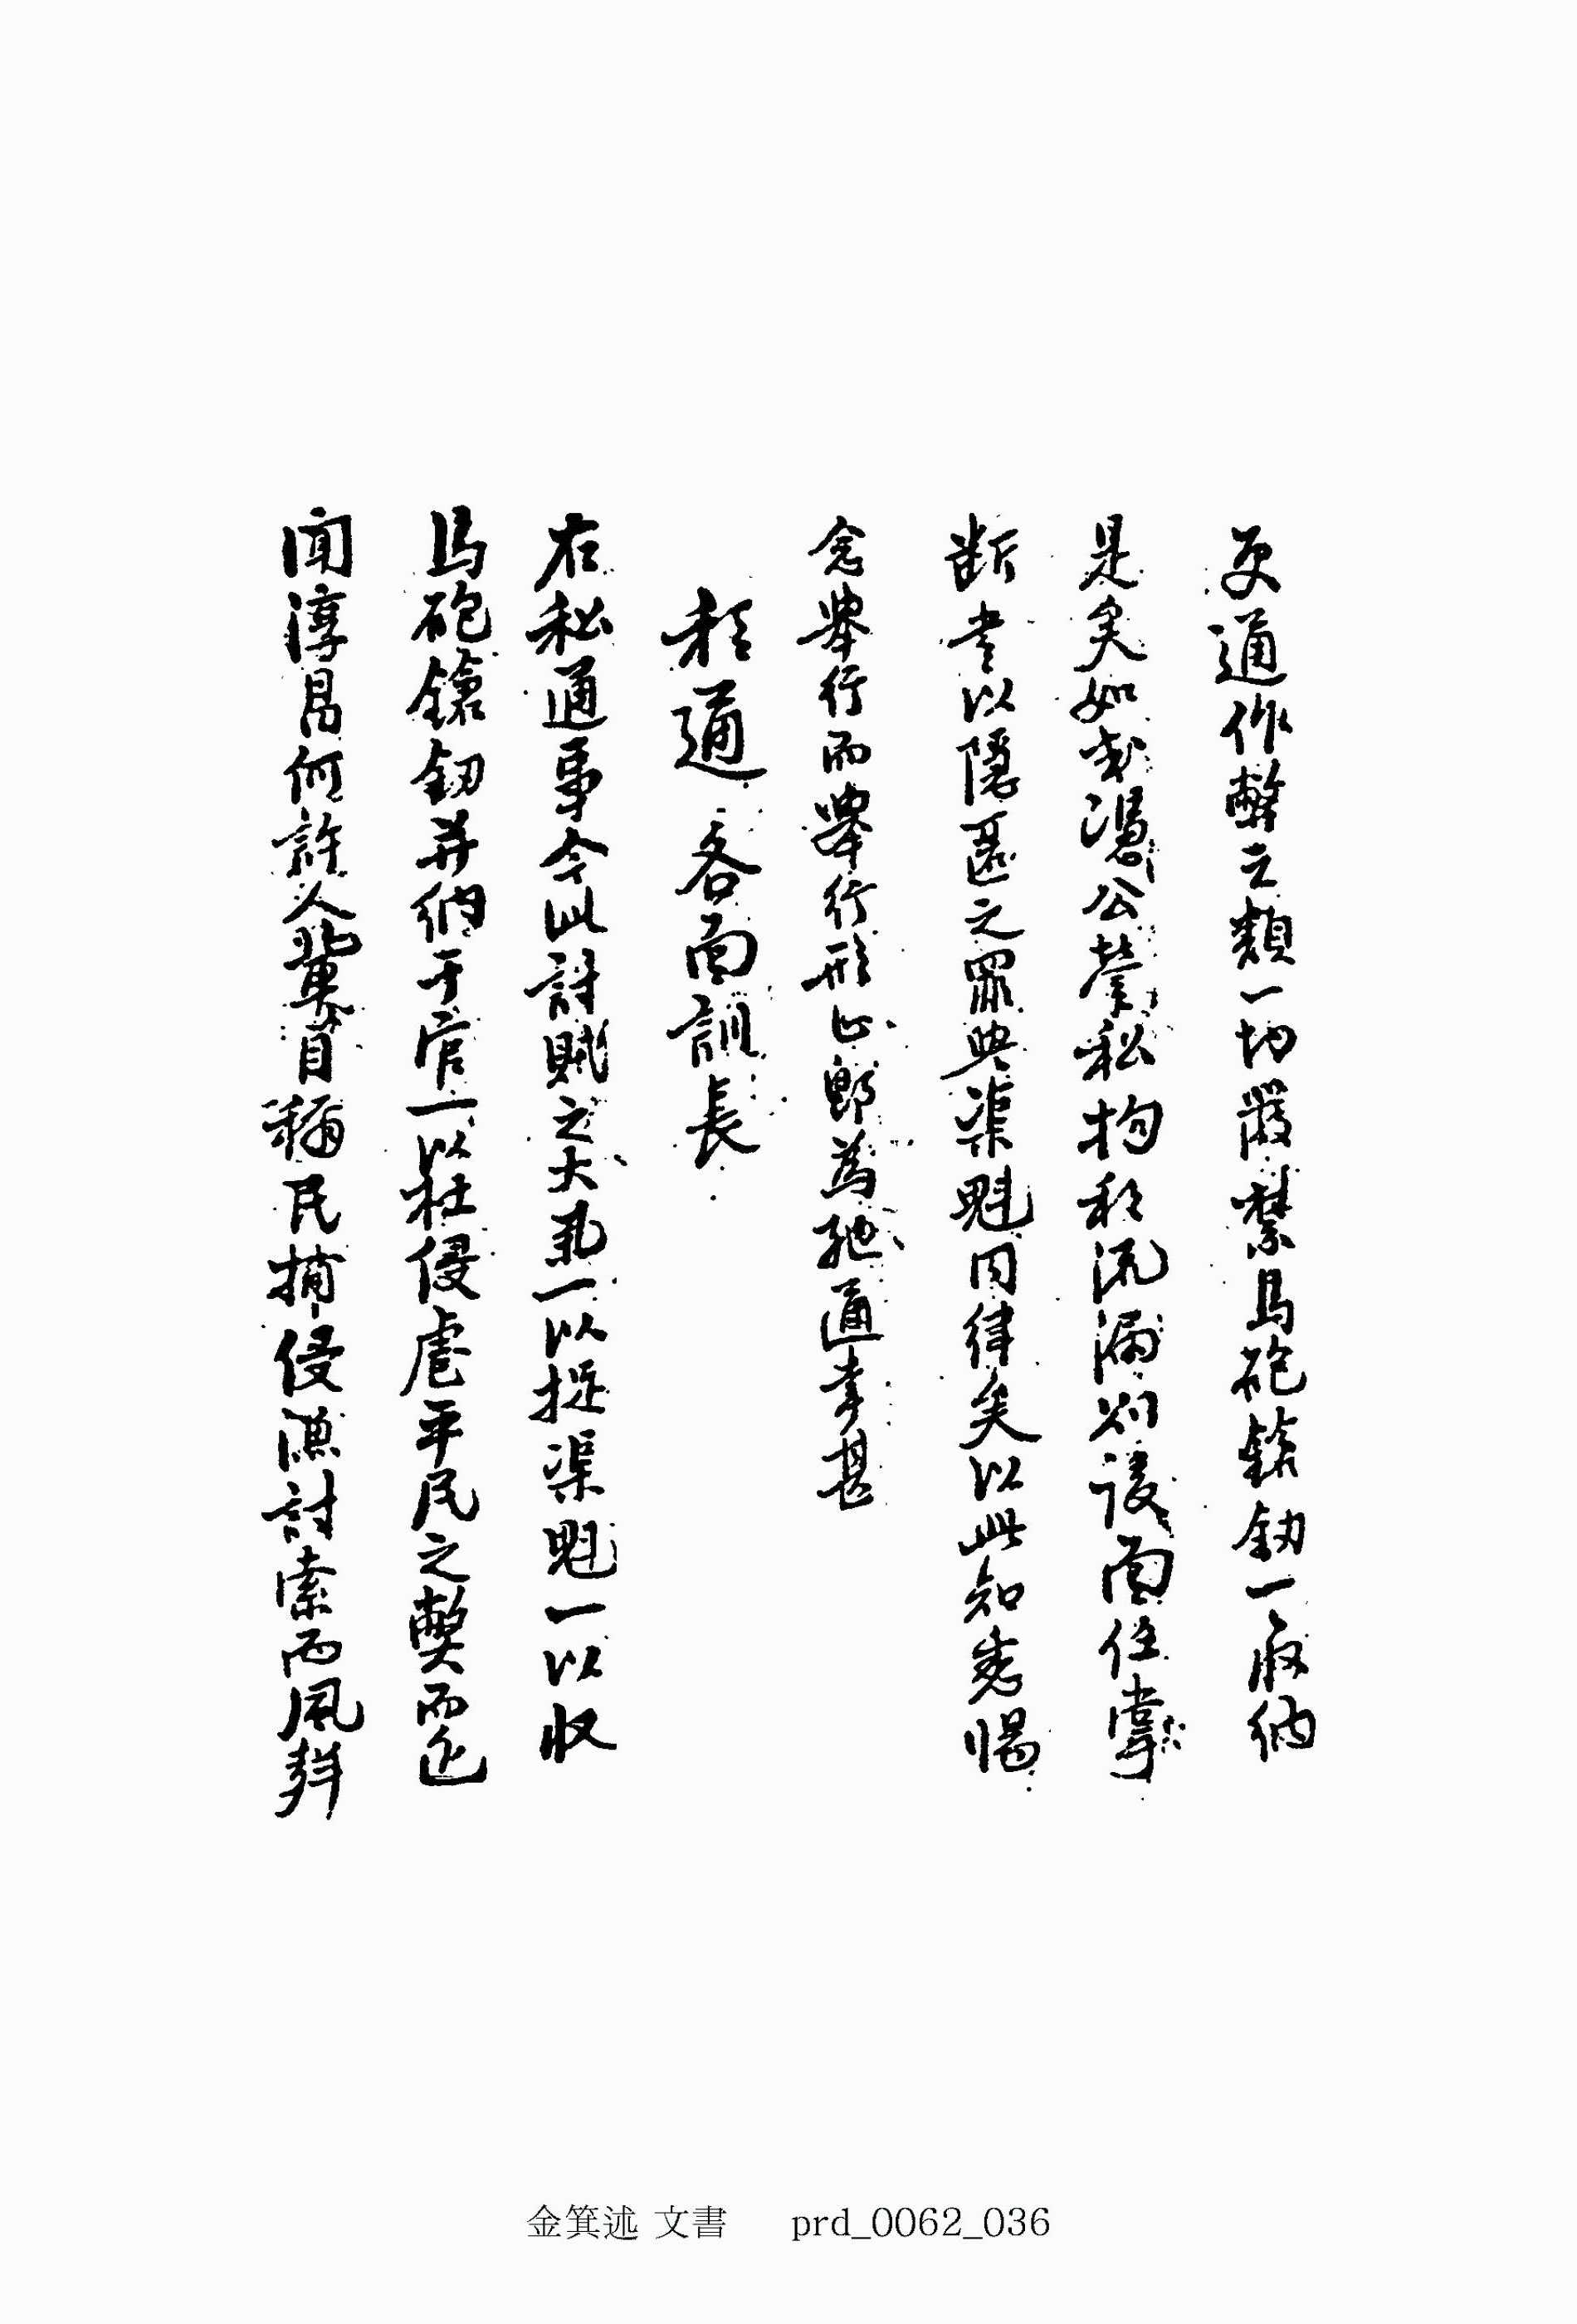 更通作弊之類一切嚴禁馬砲鎗釰一一収納
是矣如或憑公營私拘私流漏則該面任掌
断當以隱匿之罪與渠魁同律矣以此知悉惕
念擧行而擧行形止郞爲馳通幸甚
私通 各面訓長
右私通事今此討賊之大承一以捉渠魁一以収
馬砲鎗釰并納于官一以杜侵虐平民之弊而近
聞淳昌何許人輩冒稱民捕侵漁討索而風聲
金箕述 文書 prd_0062_036